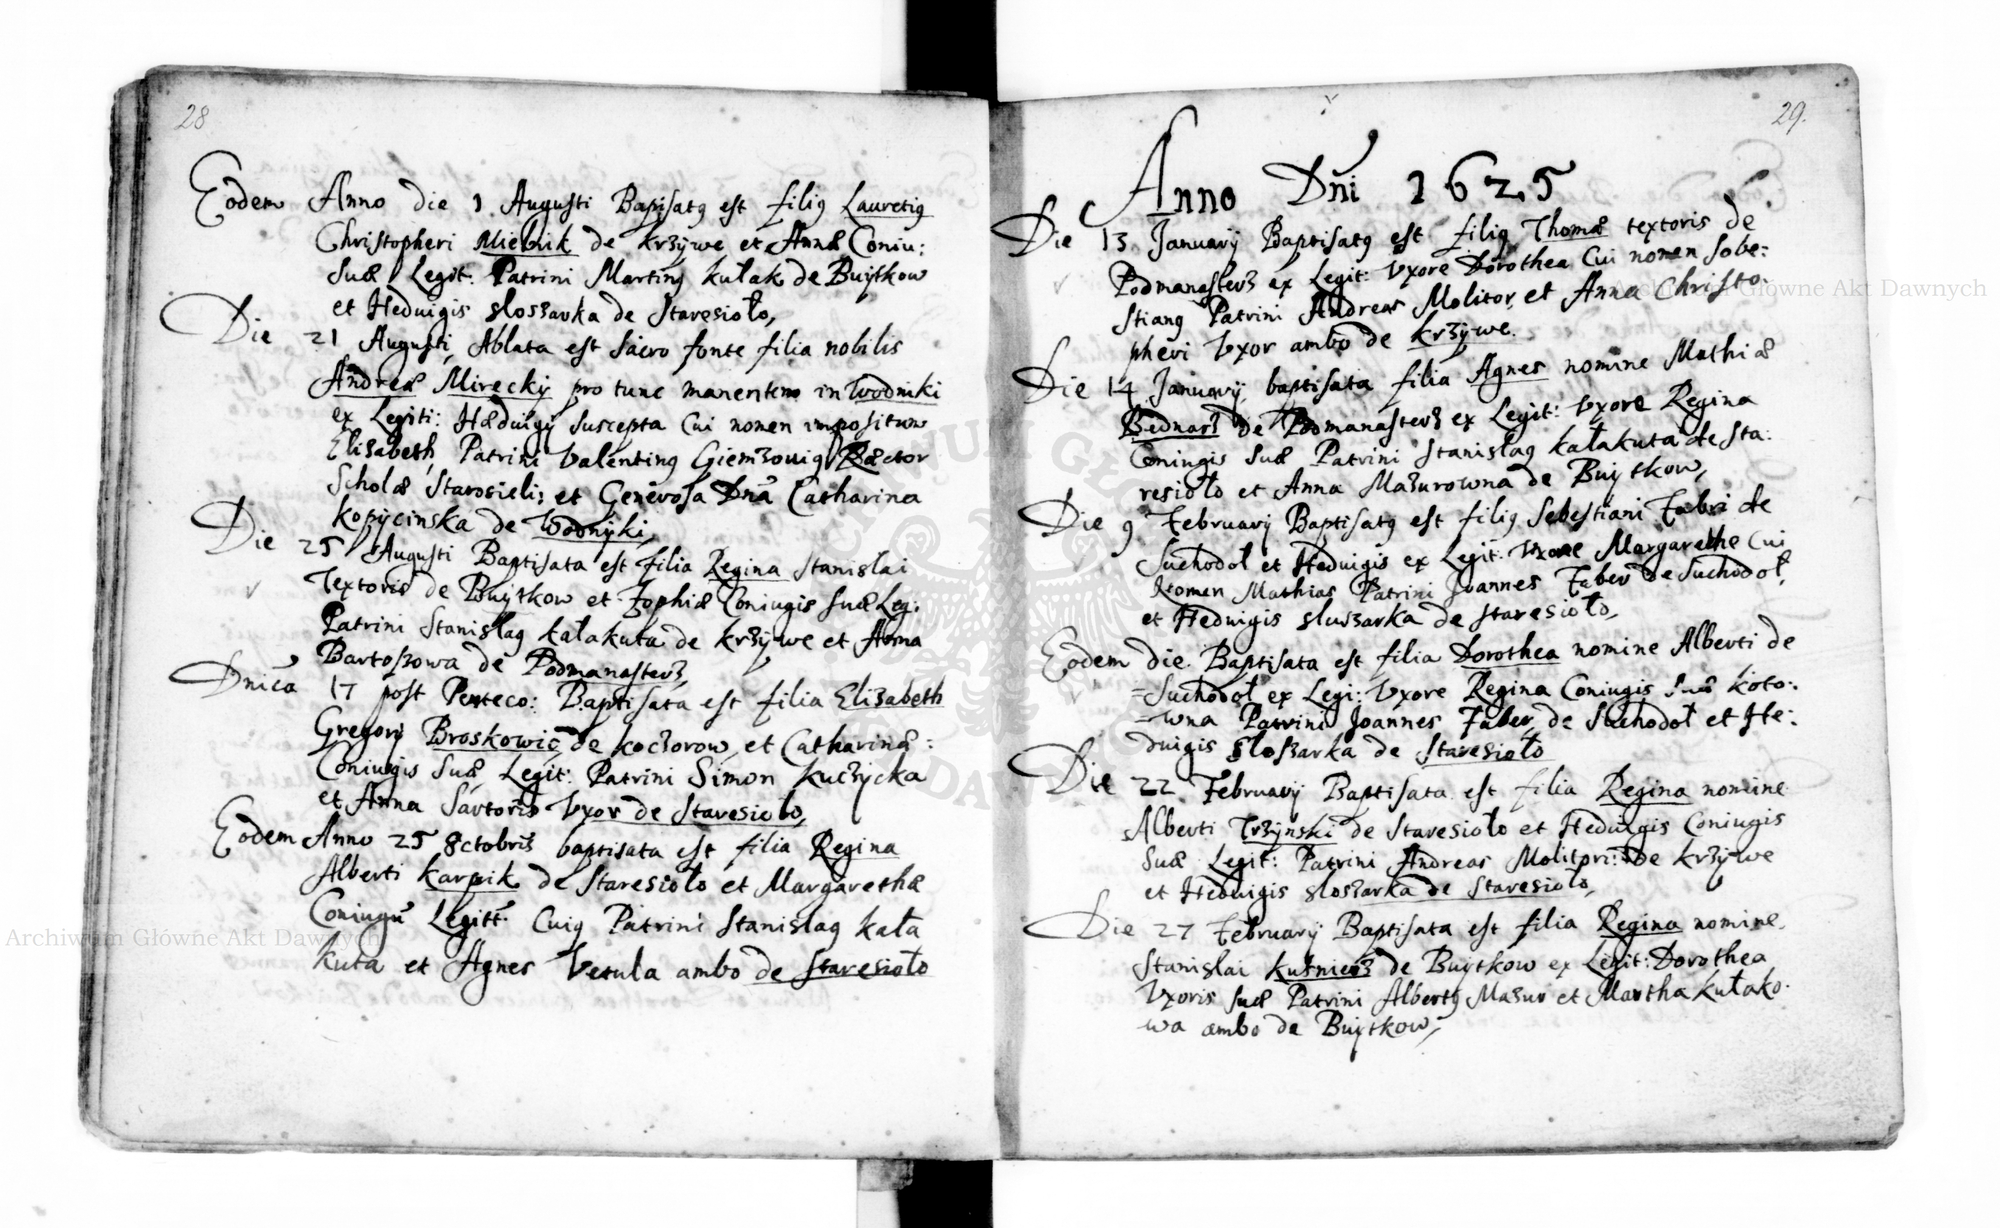 28
Eodem Anno die 1 Augusti Baptisatꝯ est filiꝯ Lauretiꝯ
Christopheri Mielnik de Krzywe et Annæ Coniu:
suæ Legit: Patrini Martinꝯ Kułak de Buytkow
et Heduigis sloszarka de Staresioło,
Die 21 Augusti, Ablata est sacro fonte filia nobilis
Andreæ Mirecky pro tunc manentem in Wodniki
ex Legiti: Hæduigy suscepta Cui nomen impositum
Elisabeth, Patrini Valentinꝯ Giemzouigꝯ Ræctor
Scholæ Starosielis et Generosa Dna Catharina
Kopycinska de Wodnyki,
Die 25 Augusti Baptisata est filia Regina Stanislai
Textoris de Buytkow et Zophiæ Coniugis suæ Leg:
Patrini Stanislaꝯ Kałakuta de Krzywe et Anna
Bartoszowa de Podmanasterz,
Dnica 17 post Penteco: Baptisata est filia Elizabeth
Gregory Broskowic de Koczorow et Catharinæ:
Coniugis suæ Legit: Patrini Simon Kuczycka
et Anna Sartoris Vxor de Staresioło,
Eodem Anno 25 8ctobris baptisata est filia Regina
Alberti Karpik de Staresioło et Margarethæ
Coniugū Legitt: Cuiꝯ Patrini Stanislaꝯ Kała
kuta et Agnes Vetula ambo de Staresioło
29.
Anno Dni 1625
Die 13 January Baptisatꝯ est filiꝯ Thomæ textoris de
Podmanasterz ex Legit: Vxore Dorothea Cui nomen Sobe:
stianꝯ Patrini Andreas Molitor, et Anna Christo:
pheri Vxor ambo de Krzywe.
Die 14 January, baptisata filia Agnes nomine Mathiæ
Bednarz de Podmanasterz ex Legit: Vxore Regina
Coniugis suæ Patrini Stanislaꝯ Kałakuta de Sta:
resioło et Anna Mazurowna de Buytkow,
Die 9 February Baptisatꝯ est filiꝯ Sebestiani Fabri de
Suchodoł et Heduigis ex Legit: Vxore Margarethe Cui
Nomen Mathias Patrini Joannes Faber de Suchodoł,
et Heduigis sluszarka de Staresioło,
Eodem die Baptisata est filia Dorothea nomine Alberti de
=Suchodoł ex Legi: Vxore Regina Coniugis suæ Koto:
-wna Patrini Joannes Faber, de Suchodoł et He:
duigis sloszarka de Staresioło
Die 22 February Baptisata est filia Regina nomine
Alberti Trzynski de Staresioło et Heduigis Coniugis
suæ Legit: Patrini Andreas Molitori: de Krzywe
et Heduigis sloszarka de Staresioło,
Die 27 February Baptisata est filia Regina nomine
Stanislai Kusnierz de Buytkow ex Legit: Dorothea
Vxoris suæ Patrini Albertꝯ Mazur et Martha Kułako:
wa ambo de Buytkow,
Archiwum Główne Akt Dawnych
Archiwum Główne Akt Dawnych